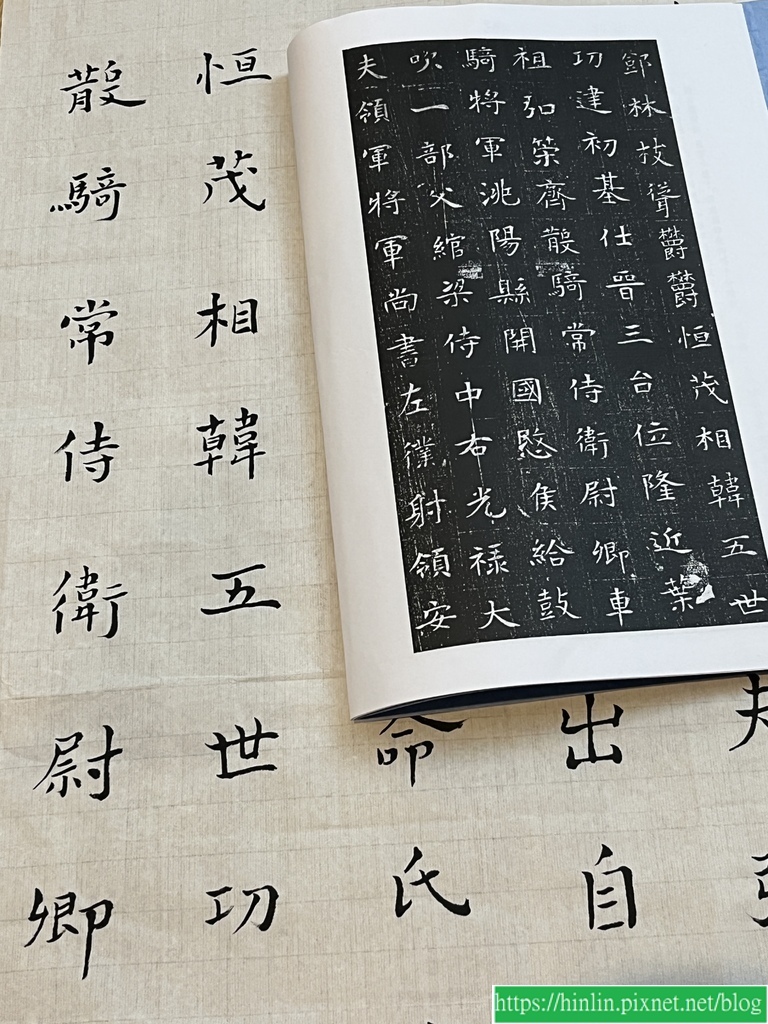 鄧林技聳欝欝恒茂相韓五世
功建初基仕晉三台位隆近葉
祖弘策齊散騎常侍衛尉卿車
騎將軍洮陽縣開國愍侯給鼓
吹一部父綰梁侍中右光禄大
夫領軍將軍尚書左僕射領安
出自
命氏
恒茂相韓五世功
散騎常侍衛尉卿
https://hinlin.pixnet.net/blog